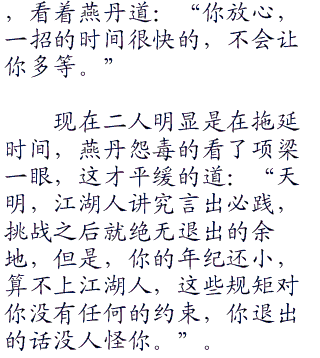 ，看着燕丹道：“你放心，
一招的时间很快的，不会让
你多等。”
现在二人明显是在拖延
时间，燕丹怨毒的看了项梁
一眼，这才平缓的道：“天
明，江湖人讲究言出必践，
挑战之后就绝无退出的余
地，但是，你的年纪还小，
算不上江湖人，这些规矩对
你没有任何的约束，你退出
的话没人怪你。”。